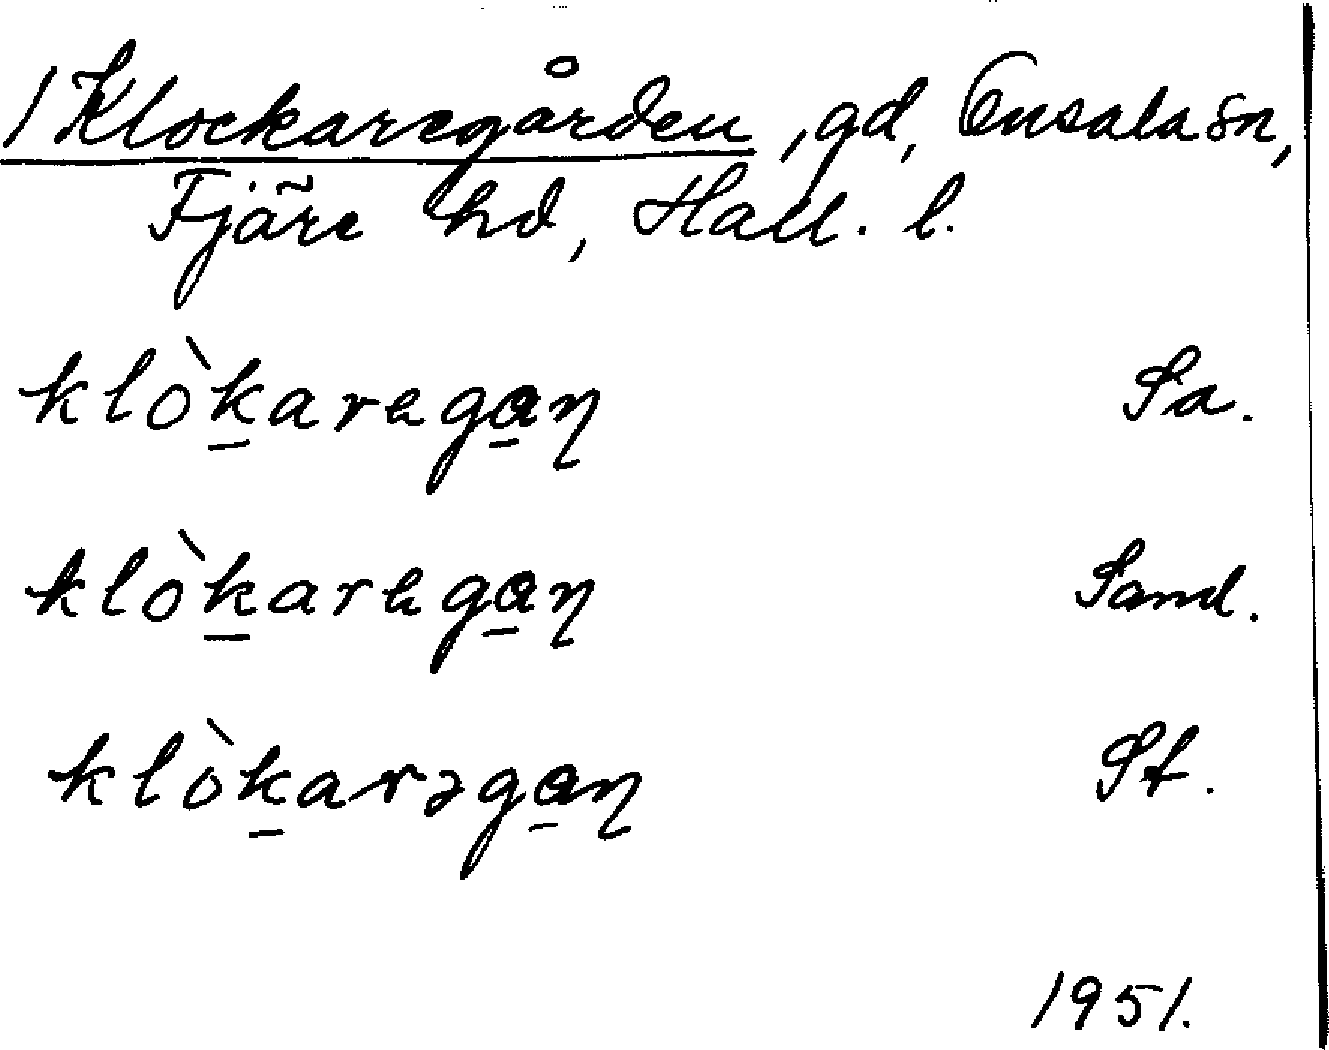 / Klockaregården, gd, Onsala sn,
Fjäre hd, Hall. l.
klòk̲arega̲ɳ Sa.
klòk̲arega̲ɳ Sand.
klòk̲arəga̲ɳ St.
1951.